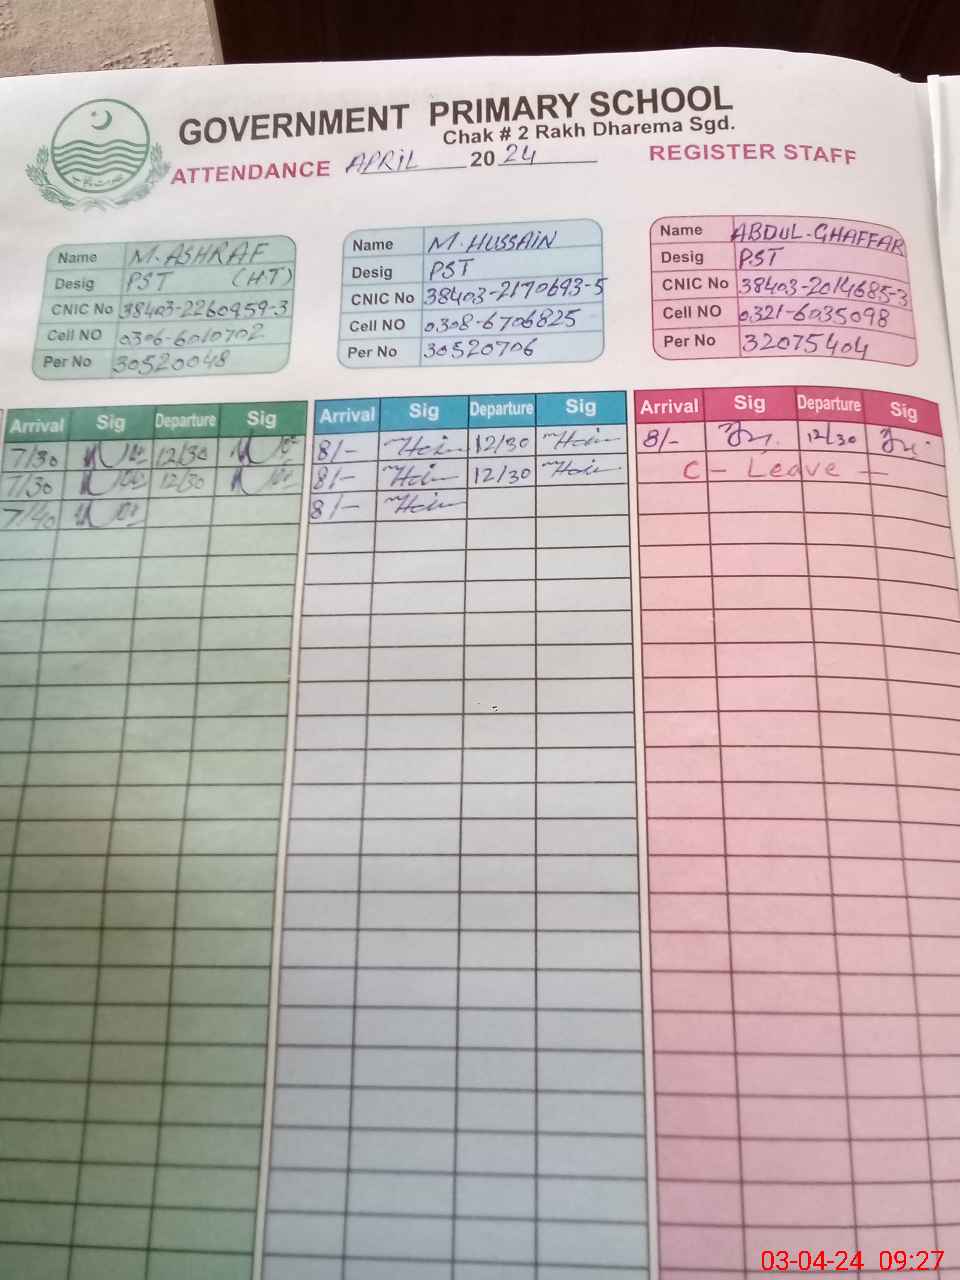 GOVERNMENT PRIMARY SCHOOL
Chak # 2 Rakh Dharema Sgd.
ATTENDANCE APRIL 2024 REGISTER STAFF
Name M. ASHRAF
Desig PST (HT)
CNIC No 38403-2260959-3
Cell NO 0306-6010702
Per No 30520048
Name M. HUSSAIN
Desig PST
CNIC No 38403-2170693-5
Cell NO 0308-6706825
Per No 30520706
Name ABDUL. GHAFFAR
Desig PST
CNIC No 38403-2014685-3
Cell NO 0321-6035098
Per No 32075404
Arrival Sig Departure Sig Arrival Sig Departure Sig Arrival Sig Departure Sig
7/30 12/30 8/- 12/30 8/- 12/30
7/30 12/30 8/- 12/30 C - Leave -
7/40 8/-
03-04-24 09:27